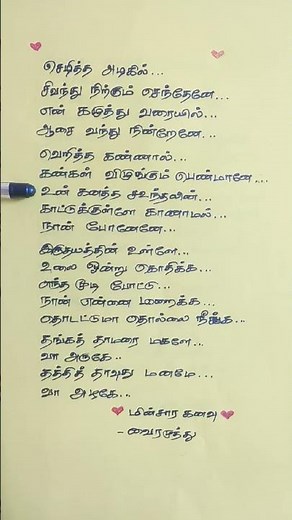 செழித்த அழகில்...
சிவந்து நிற்கும் செந்தேனே...
என் கழுத்து வரையில்...
ஆசை வந்து நின்றேனே...
வெறித்த கண்ணால்...
கண்கள் விழுங்கும் பெண்மானே...
உன் கனத்த சவுந்தலின்
காட்டுக்குள்ளே காணாமல்...
நான் போனேனே...
இருதயத்தின் உள்ளே...
உலை ஒன்று கொதிக்க...
எந்த மூடி போட்டு...
நான் என்னை மறைக்க...
தொடட்டுமா தொல்லை நீங்க...
தங்கத் தாமரை மகளே...
வா அருகே..
தத்தித் தாவுது மனமே...
வா அழகே...
மின்சார கனவு
- வைரமுத்து